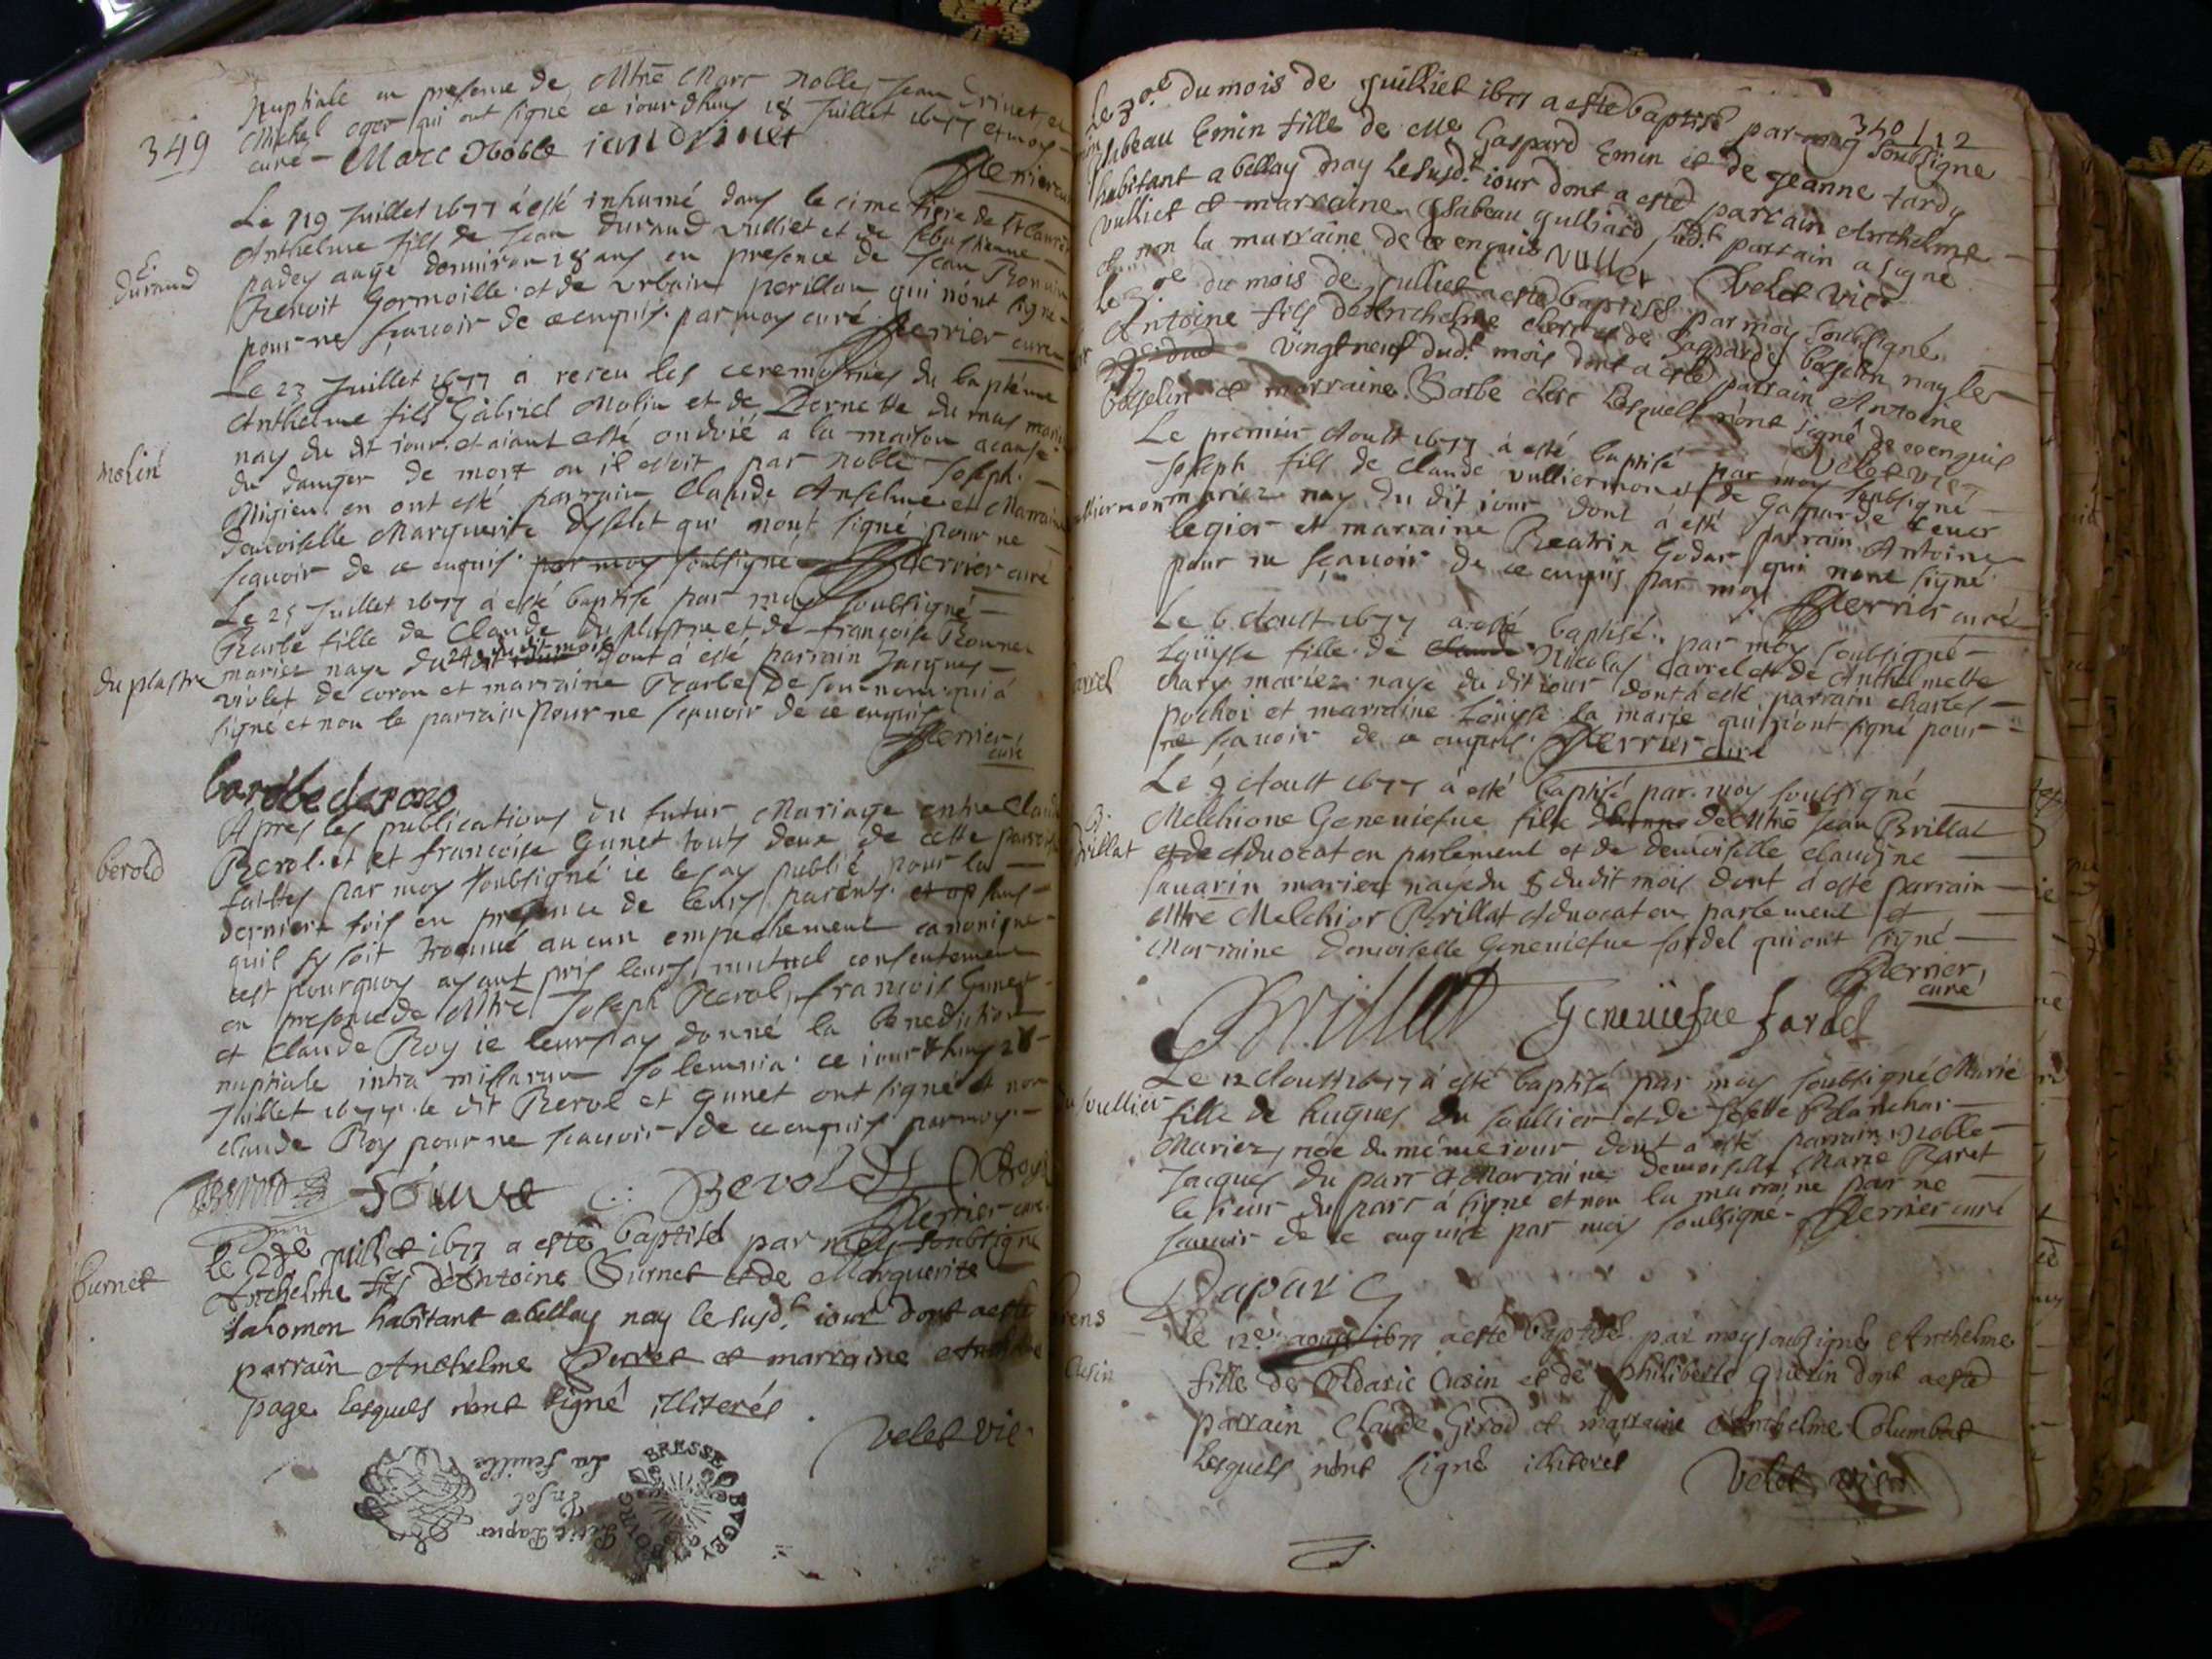 349
Nuptiale en presence de Mtre Marc Noble, Jean Drinet, et
Michel oger qui ont signe ce iourdhuy 18 Juillet 1677 et moy
curé – Marc Noble ian drinet
Perrier curé
Le 19 Juillet 1677 à esté inhumé dans le cimetiere de St Laurent
Durand
Anthelme fils de Jean Durand vulliet et de sebastienne
padey augé denviron 18 ans en presence de Jean
Benoit Gormoille et de urbain perillon qui nont signé
pour ne scavoir de ce enquis par moy curé Perrier curé
Le 23 Juillet 1677 a receu les ceremonies du baptéme
Anthelme fils de Gabriel Molin et de Pernette du mas mariez
molin
nay du dit iour et aiant esté ondoié a la maison acause
du danger de mort ou il estoit par noble Joseph
Migieu en ont esté parrain Claude Anselme et Marraine
demoiselle Marguerite dyselet qui nont signé pour ne
scavoir de ce enquis par moy soubsigné Perrier curé
Le 25 Juillet 1677 à esté baptisé par moy soubsigné
Barbe fille de Claude du plastre et de françoise
du plastre
mariez naye du 24 du dit mois dont à esté parrain Jacques
violet de coron et marraine Barbe de seronom qui à
signé et non le parrain pour ne scavoir de ce enquis
Perrier curé
barbe
Apres les publications du futur Mariage entre Claude
berold
Berol et françoise Gunet touts deux de cette parroisse
faittes par moy soubsigné ie les ay publié pour la
derniere fois en presence de leurs parents et sans
quil sy soit trouvué aucun empechement canonique
cest pourquoy ayant pris leurs mutuel consentement
en presence de Mtre Joseph Berol, francois Gunet
et Claude Roy ie leurs ay donné la benediction
nuptiale intra missarum solemnia ce iourdhuy 28
Juillet 1677 le dit Berol et Gunet ont signé et non
claude Roy pour ne scavoir de ce enquis par moy
Berold
Perrier curé
Le 28e juillet 1677 a esté baptisé par moy soubsigné
burnet
Anthelme fils d'Antoine Burnet et de Marguerite
salomon habitant abellay nay le susd.t iour dont a esté
parrain Anthelme Perret et marraine Anthelme
page lesquels n'ont signé illiterés
velet vic
BRESSE BVGEY BOVRG
Petit Papier
Un sol
La feuille
340 112
Le 30e du mois de juilliet 1677 a esté baptisé par moy soubsigne
ysabeau Emin fille de Me Gaspard Emin et de jeanne tardy
habitant a bellay nay le susd.t iour dont a esté parrain Anthelme
vulliet et marraine ysabeau gulliard sud.t parrain a signe
et non la marraine de ce enquis vulliet Velet vic
le 30e du mois de julliet a esté baptisé par moy soubsigné
Antoine fils de Anthelme clerc et de Gasparde bosselin nay le
vingt neuf dud.t mois dont a esté parrain Antoine
bosselin et marraine Barbe clerc lesquels n'ont signé de ce enquis
velet vic
Le premier Aoust 1677 à esté baptisé par moy soubsigné
Joseph fils de Claude vulliermon et de Gasparde
vulliermon
mariez nay du dit iour dont à esté parrain Antoine
legier et marraine Beatrix Godar qui nont signé
pour ne sçavoir de ce enquis par moy Perrier curé
Le 6 Aoust 1677 à esté baptisé par moy soubsigné
Loüisse fille de Nicolas Carrel et de Anthelmette
Carrel
clary mariez naye du dit iour dont à esté parrain charles
pochoi et marraine Loüisse la marje qui nont signé pour
ne scavoir de ce enquis Perrier curé
Le 9 Aoust 1677 à esté baptisé par moy soubsigné
Melchione Geneuiefue fille de Mtre Jean Brillat
Brillat
et de Advocat en parlement et de demoiselle claudine
sauarin mariez naye du 8 du dit mois dont à esté parrain
Mtre Melchior Brillat Advocat en parlement et
Marraine Demoiselle Geneuiefue fardel qui ont signé
Perrier, curé
Brillat Geneuiefue fardel
Le 12 Aoust 1677 à esté baptisé par moy soubsigné Marie
du soullier
fille de hugues du soullier et de Josette Blanchar
Mariez, née du méme iour dont à esté parrain Noble
Jacques du parc et Marraine demoiselle Marie Baret
le sieur du parc à signé et non la marraine par ne
scavoir de ce enquise par moy soubsigné Perrier curé
Duparc
le 12e aoust 1677 a esté baptisé par moy soubsigné Anthelme
Cusin
fille de Oldaric Cusin et de philiberte Guerin dont a esté
parrain Claude Girod et marraine Anthelme Columbat
lesquels n'ont signé illiterés velet vic